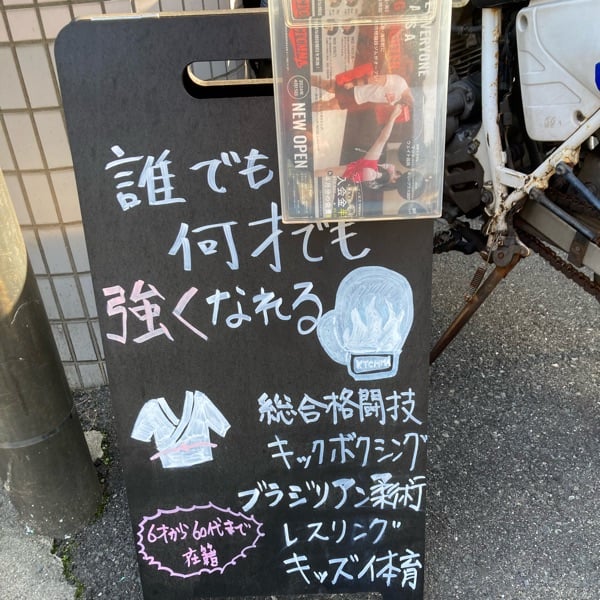 誰でも
何才でも
強くなれる
KTCMMA
総合格闘技
キックボクシング
ブラジリアン柔術
レスリング
キッズ体育
6才から60代まで
在籍
NEW OPEN
入会金
EVERYONE